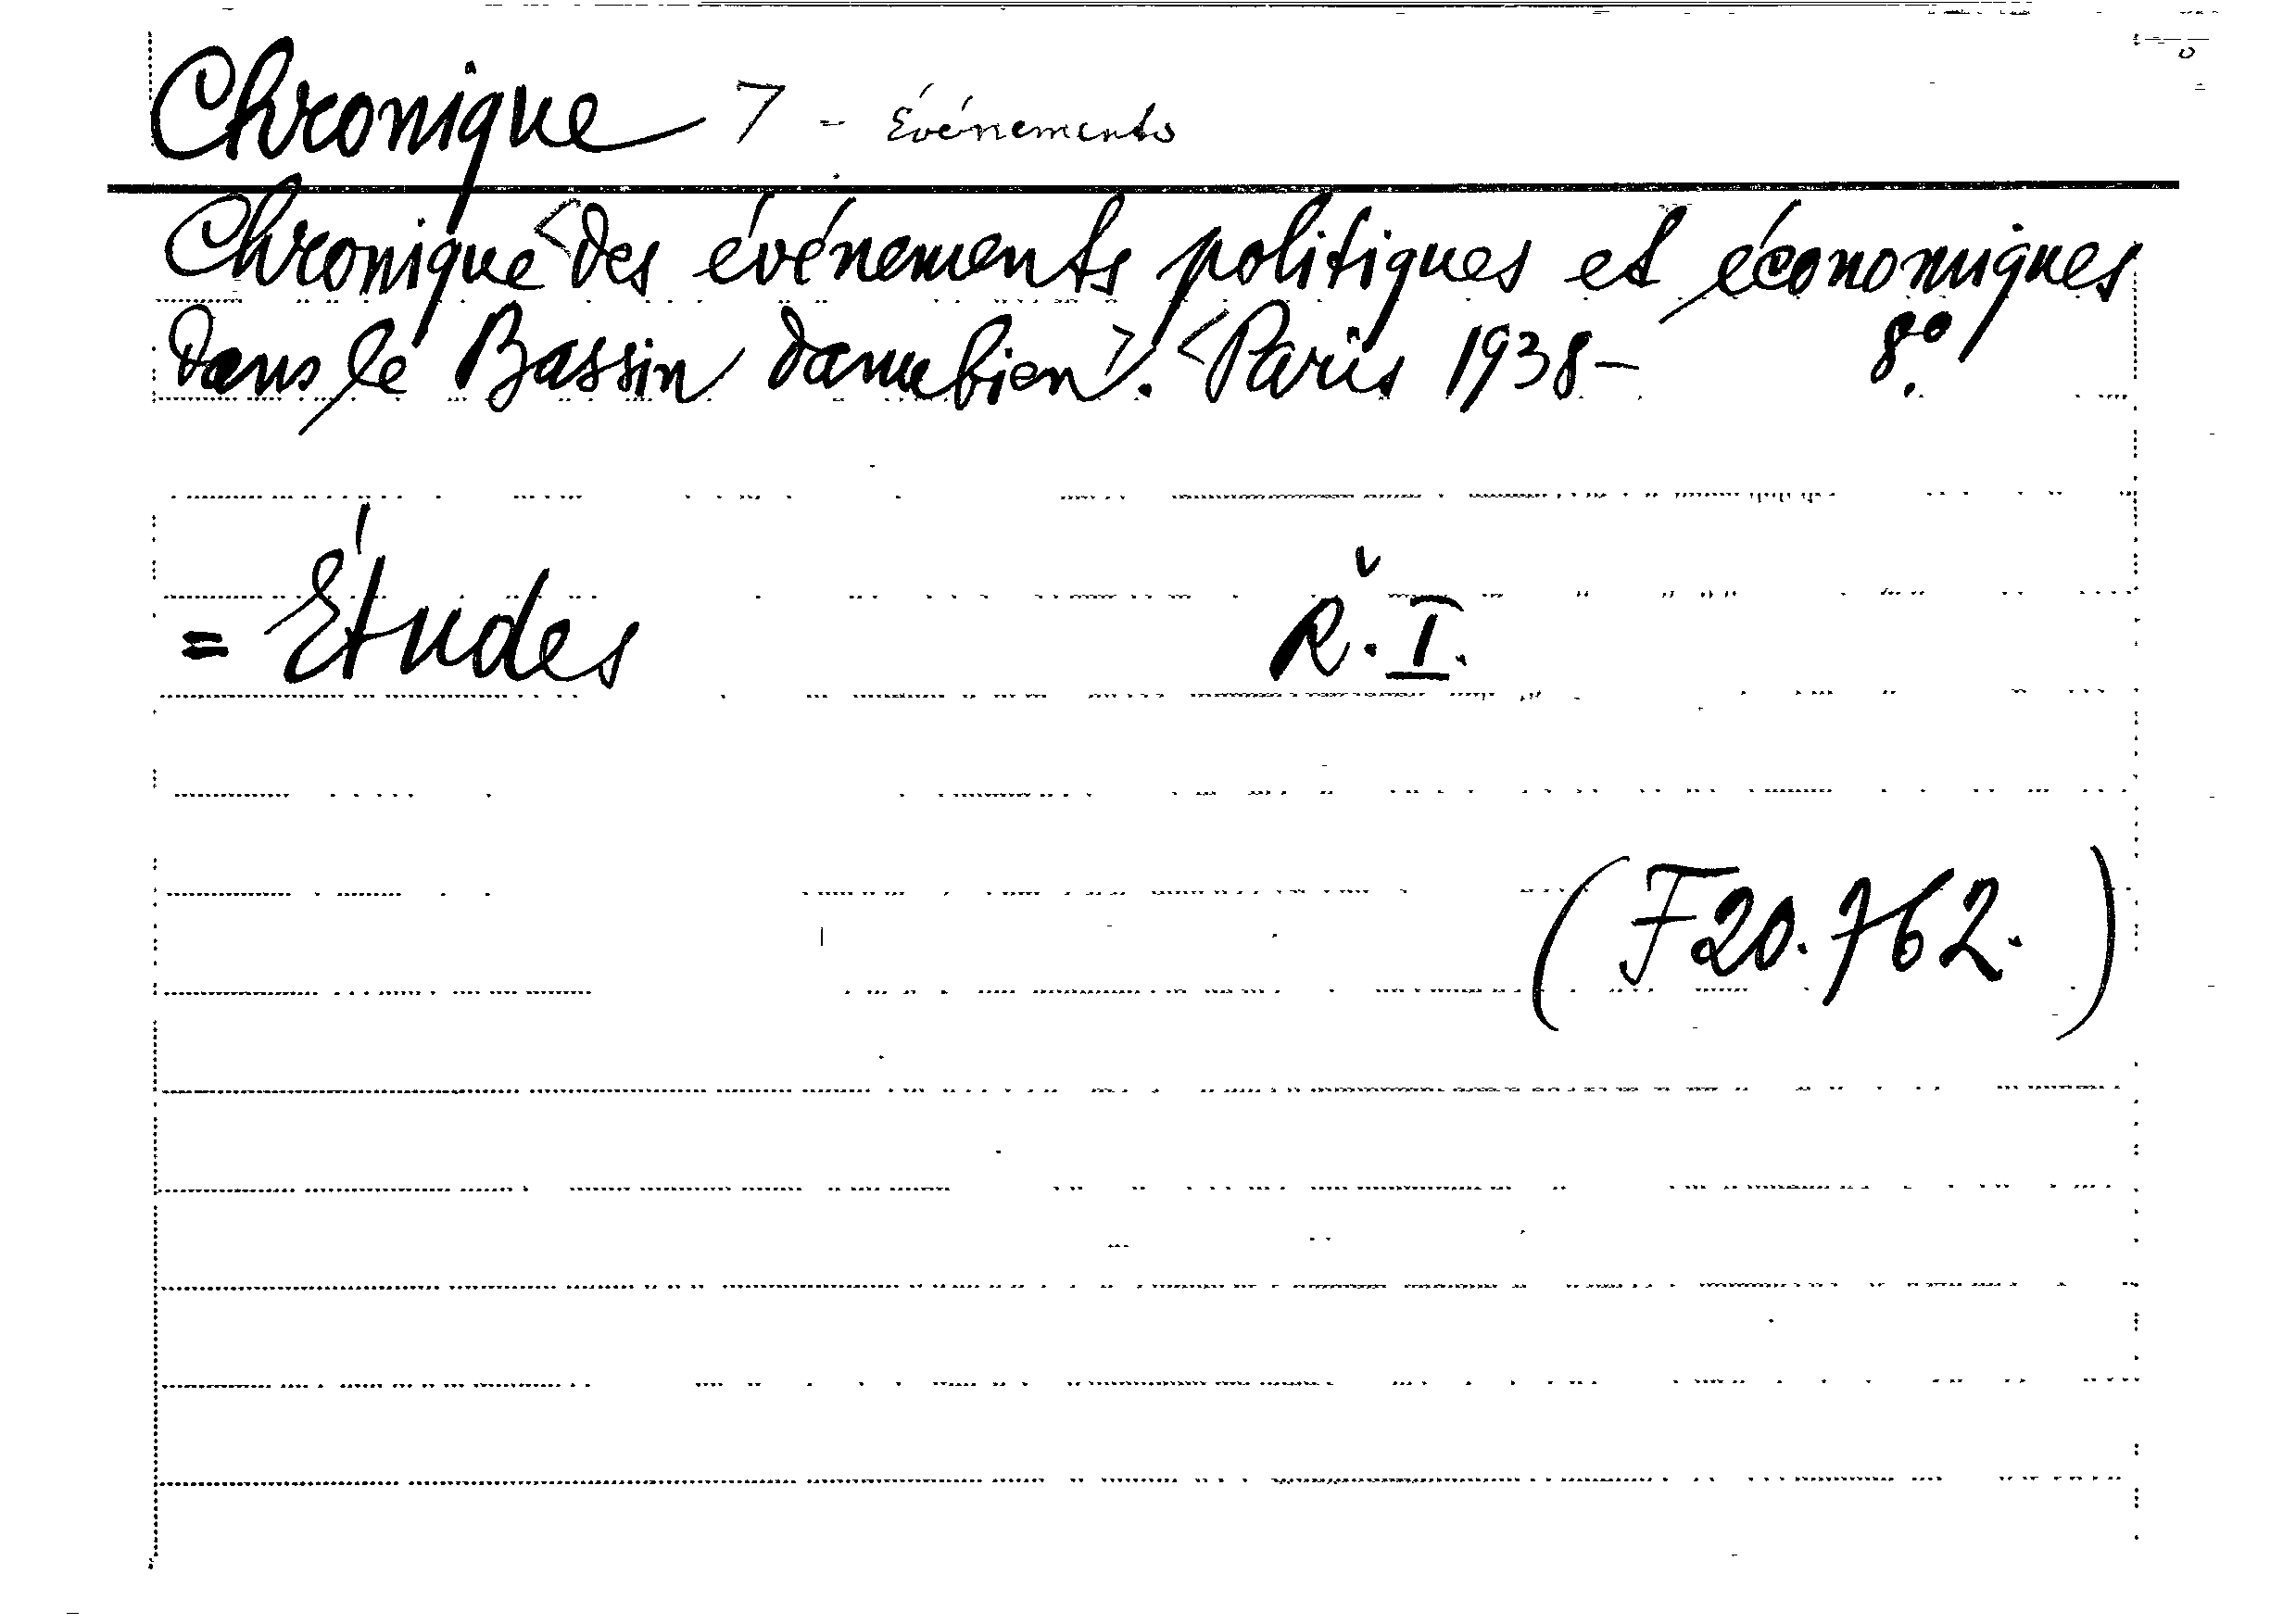 Chronique 7 - Événements
Chronique <des événements politiques et économiques
dans le Bassin danubien>. <Paris 1938- 8°.
= Études R.I.
(F20.762.)